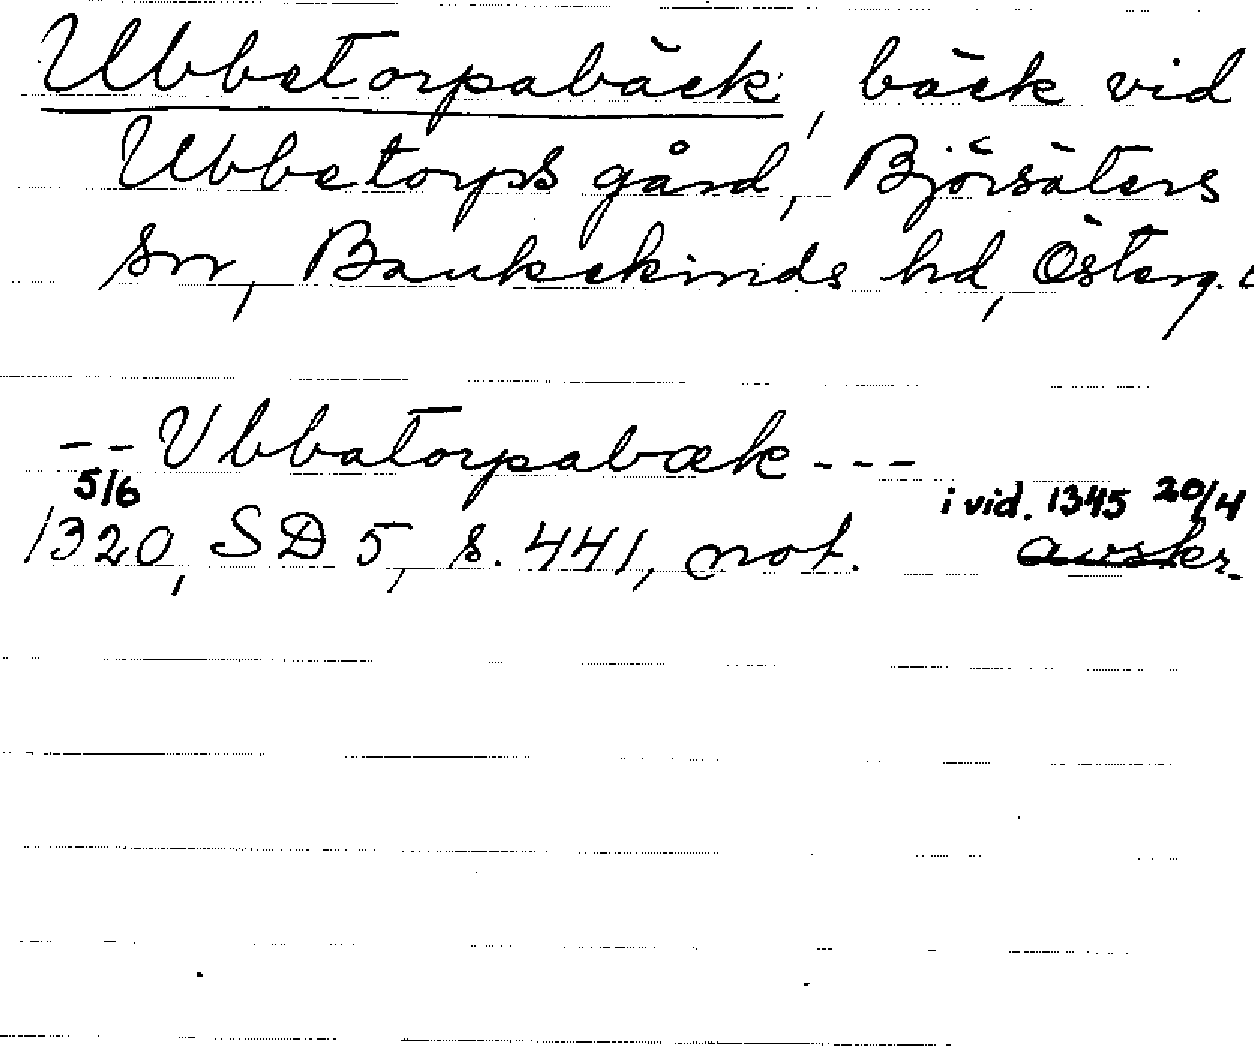 Ubbetorpabäck, bäck vid
Ubbetorps gård, Björsäters
sn, Bankekinds hd, Österg.
-- Vbbatorpabæk ---
5/6 i vid. 1345 20/4
1320, SD 5, s. 441, not. avskr.